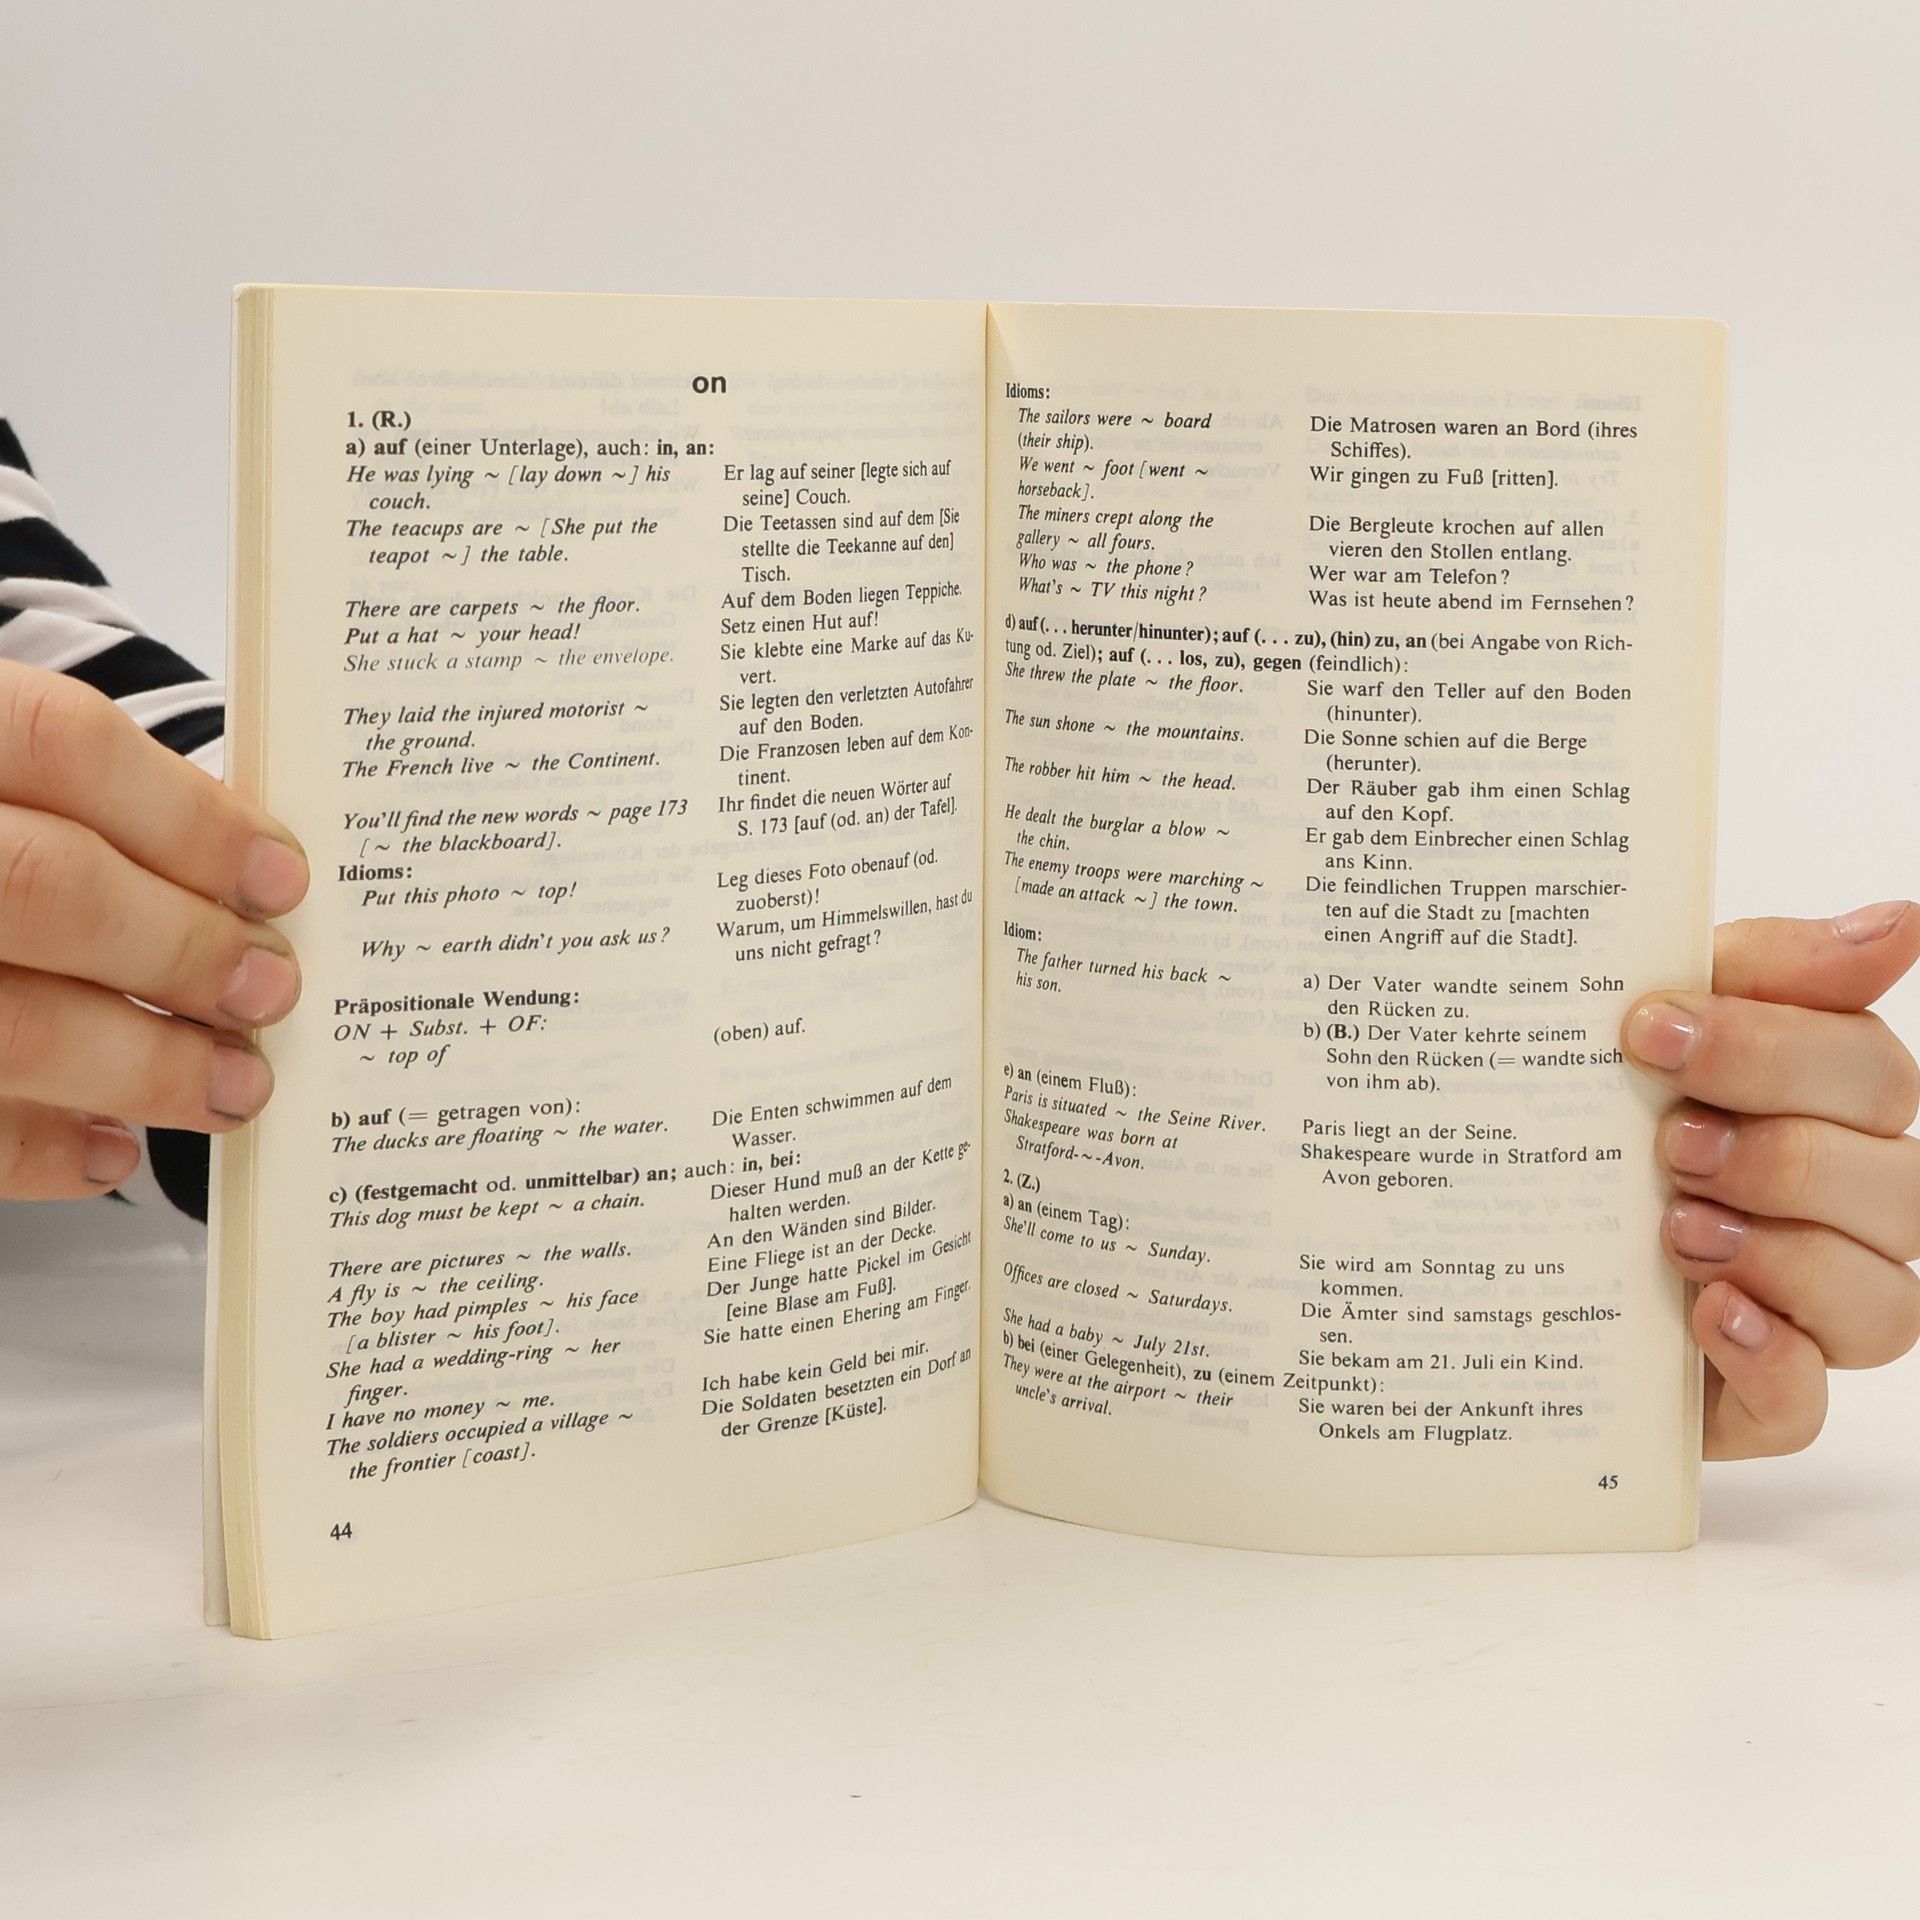 on
1. (R.)
a) auf (einer Unterlage), auch: in, an:
He was lying ~ [lay down ~] his
couch.
The teacups are ~ [She put the
teapot ~] the table.
There are carpets ~ the floor.
Put a hat ~ your head!
She stuck a stamp ~ the envelope.
They laid the injured motorist ~
the ground.
The French live ~ the Continent.
You'll find the new words ~ page 173
[~ the blackboard].
Idioms:
Put this photo ~ top!
Why ~ earth didn't you ask us?
Er lag auf seiner [legte sich auf
seine] Couch.
Die Teetassen sind auf dem [Sie
stellte die Teekanne auf den]
Tisch.
Auf dem Boden liegen Teppiche.
Setz einen Hut auf!
Sie klebte eine Marke auf das Ku-
vert.
Sie legten den verletzten Autofahrer
auf den Boden.
Die Franzosen leben auf dem Kon-
tinent.
Ihr findet die neuen Wörter auf
S. 173 [auf (od. an) der Tafel].
Leg dieses Foto obenauf (od.
zuoberst)!
Warum, um Himmelswillen, hast du
uns nicht gefragt?
Präpositionale Wendung:
ON + Subst. + OF:
~ top of
(oben) auf.
b) auf (= getragen von):
The ducks are floating ~ the water.
Die Enten schwimmen auf dem
Wasser.
c) (festgemacht od. unmittelbar) an; auch: in, bei:
This dog must be kept ~ a chain.
There are pictures ~ the walls.
A fly is ~ the ceiling.
The boy had pimples ~ his face
[a blister ~ his foot].
She had a wedding-ring ~ her
finger.
I have no money ~ me.
The soldiers occupied a village ~
the frontier [coast].
Dieser Hund muß an der Kette ge-
halten werden.
An den Wänden sind Bilder.
Eine Fliege ist an der Decke.
Der Junge hatte Pickel im Gesicht
[eine Blase am Fuß].
Sie hatte einen Ehering am Finger.
Ich habe kein Geld bei mir.
Die Soldaten besetzten ein Dorf an
der Grenze [Küste].
44
Idioms:
The sailors were ~ board
(their ship).
We went ~ foot [went ~
horseback].
The miners crept along the
gallery ~ all fours.
Who was ~ the phone?
What's ~ TV this night?
Die Matrosen waren an Bord (ihres
Schiffes).
Wir gingen zu Fuß [ritten].
Die Bergleute krochen auf allen
vieren den Stollen entlang.
Wer war am Telefon?
Was ist heute abend im Fernsehen?
d) auf (. . . herunter/hinunter); auf (. . . zu), (hin) zu, an (bei Angabe von Rich-
tung od. Ziel); auf (. . . los, zu), gegen (feindlich):
She threw the plate ~ the floor.
The sun shone ~ the mountains.
The robber hit him ~ the head.
He dealt the burglar a blow ~
the chin.
The enemy troops were marching ~
[made an attack ~] the town.
Idiom:
The father turned his back ~
his son.
Sie warf den Teller auf den Boden
(hinunter).
Die Sonne schien auf die Berge
(herunter).
Der Räuber gab ihm einen Schlag
auf den Kopf.
Er gab dem Einbrecher einen Schlag
ans Kinn.
Die feindlichen Truppen marschier-
ten auf die Stadt zu [machten
einen Angriff auf die Stadt].
a) Der Vater wandte seinem Sohn
den Rücken zu.
b) (B.) Der Vater kehrte seinem
Sohn den Rücken (= wandte sich
von ihm ab).
e) an (einem Fluß):
Paris is situated ~ the Seine River.
Shakespeare was born at
Stratford-~-Avon.
Paris liegt an der Seine.
Shakespeare wurde in Stratford am
Avon geboren.
2. (Z.)
a) an (einem Tag):
She'll come to us ~ Sunday.
Offices are closed ~ Saturdays.
She had a baby ~ July 21st.
Sie wird am Sonntag zu uns
kommen.
Die Ämter sind samstags geschlos-
sen.
Sie bekam am 21. Juli ein Kind.
b) bei (einer Gelegenheit), zu (einem Zeitpunkt):
They were at the airport ~ their
uncle's arrival.
Sie waren bei der Ankunft ihres
Onkels am Flugplatz.
45